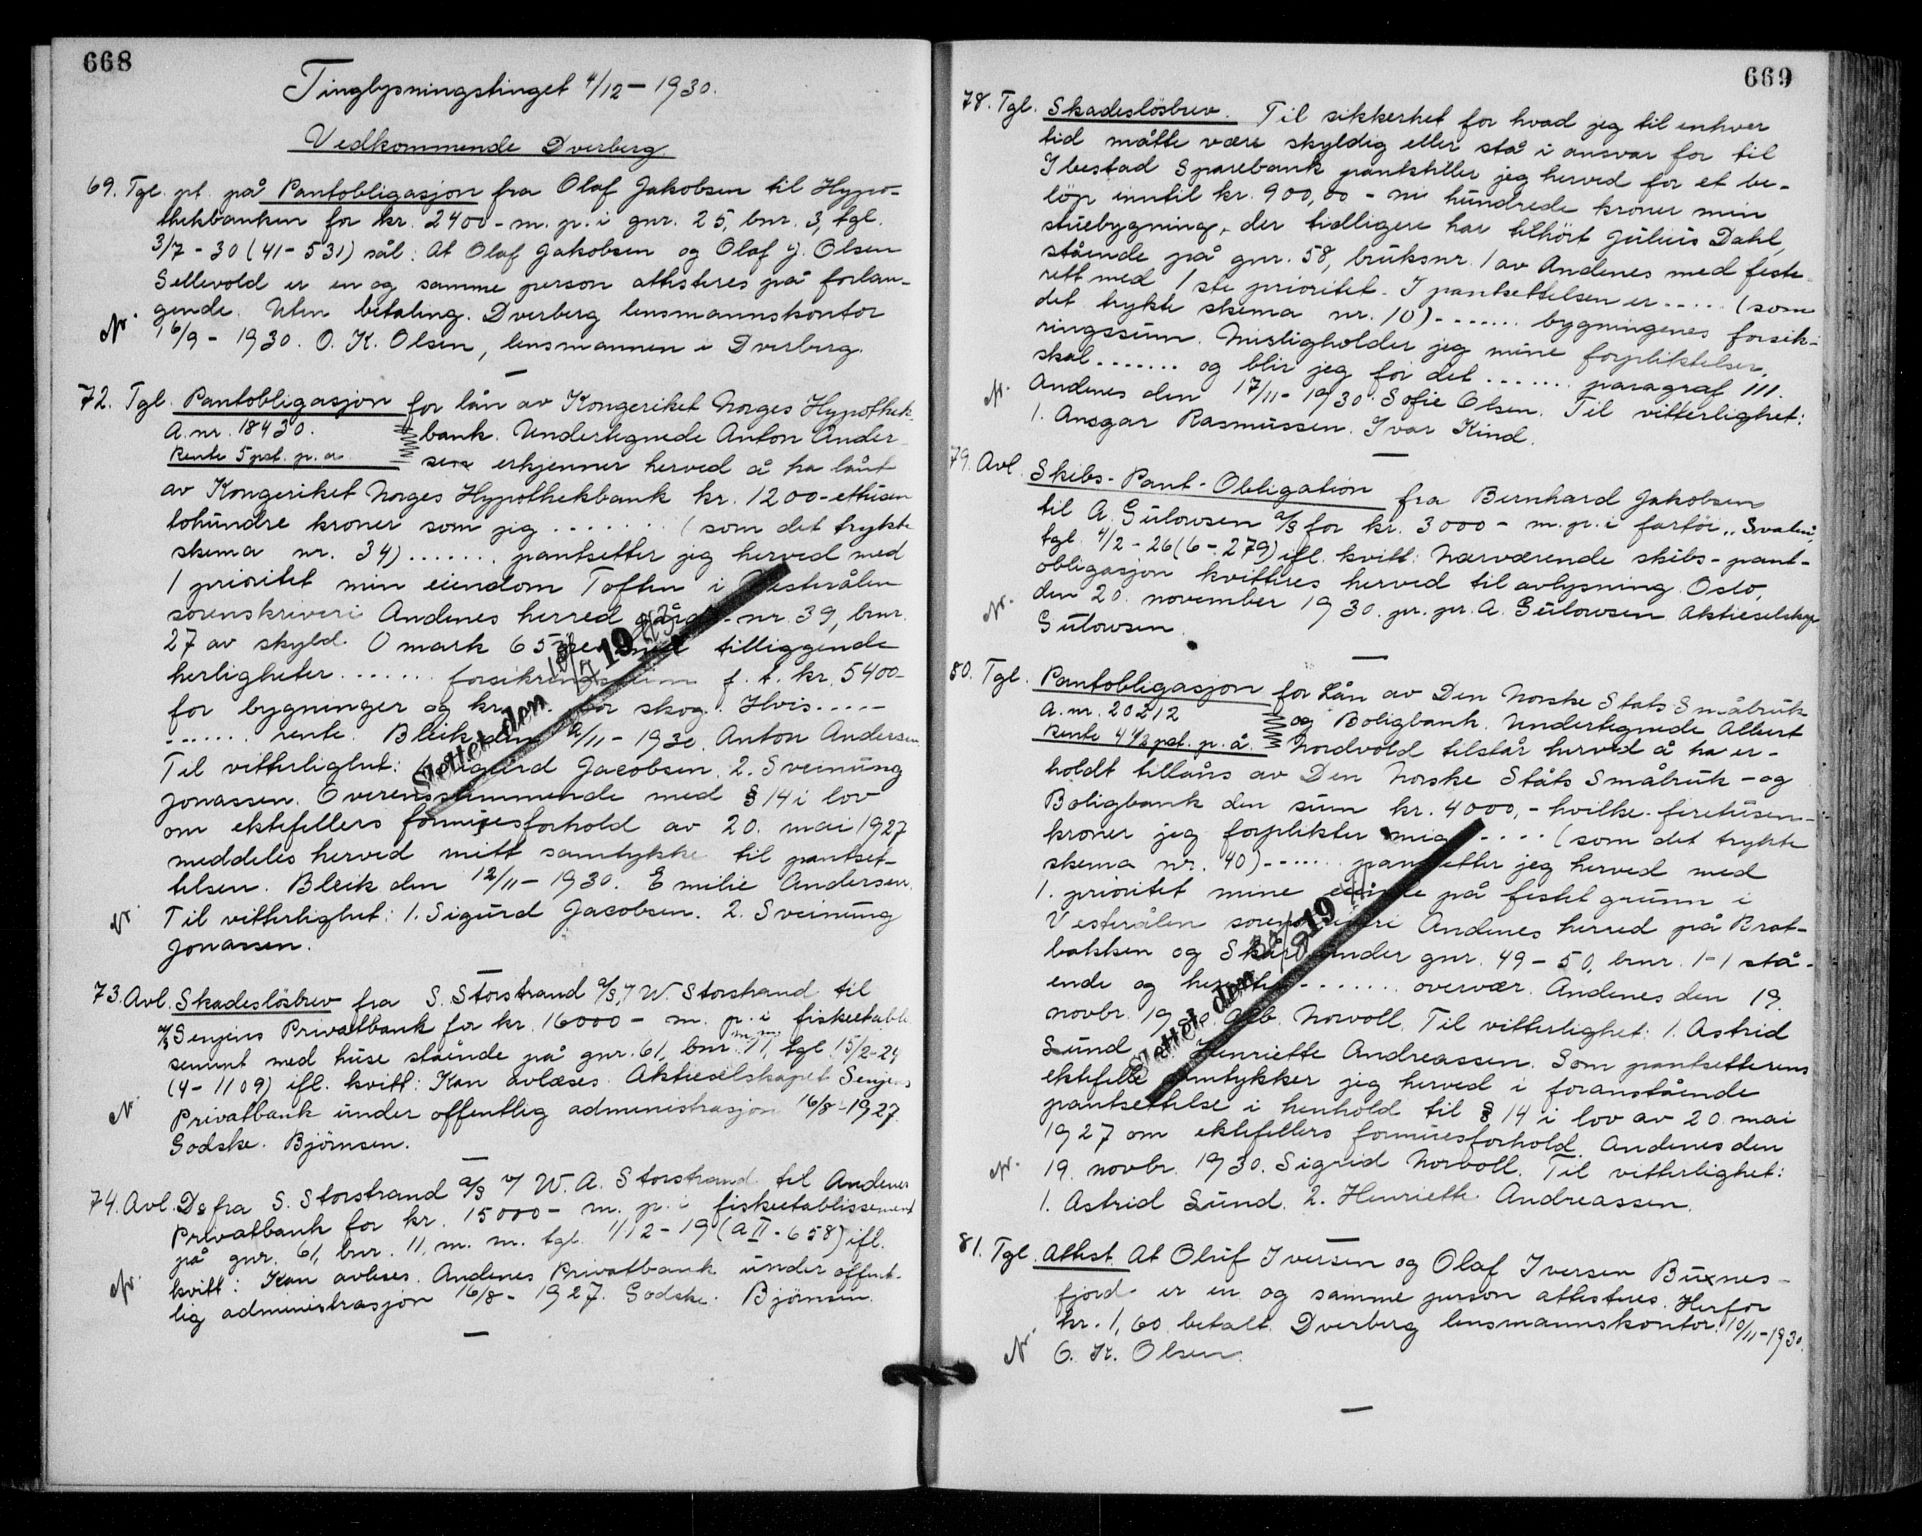 668
Tinglysningstinget 4/12 - 1930.
Vedkommende Dverberg.
69. Tgl. pt. på Pantobligasjon fra Olaf Jakobsen til Hypo-
thekbanken for kr. 2400 - m. p. i gnr. 25, bnr. 3, tgl.
3/7 - 30 (41 - 531) sål: At Olaf Jakobsen og Olaf J. Olsen
Sellevold er en og samme person attesteres på forlan-
gende. Uten betaling. Dverberg lensmannskontor
16/9 - 1930. O. K. Olsen, lensmannen i Dverberg.
72. Tgl. Pantobligasjon for lån av Kongeriket Norges Hypothek
A. nr. 18430. bank. Undertegnede Anton Ander
Rente 5 pct. p. a. sen erkjenner herved å ha lånt
av Kongeriket Norges Hypothekbank kr. 1200 - ettusen
tohundre kroner som jeg ....... (som det trykte
skema nr. 34) ...... pantsetter jeg herved med
1 prioritet min eiendom Toften i Vesterålen
sorenskriveri Andenes herred gårds-nr. 39, bnr.
27 av skyld 0 mark 65 øre med tilliggende
herligheter ....... forsikringssum f. t. kr. 5400 -
for bygninger og kr. for skog. Hvis .....
....... rente. Bleik den 12/11 - 1930. Anton Andersen.
Til vitterlighet: 1. Sigurd Jacobsen. 2. Sveinung
Jonassen. Overensstemmende med § 14 i lov
om ektefellers formuesforhold av 20. mai 1927
meddeles herved mitt samtykke til pantset-
telsen. Bleik den 12/11 - 1930. Emilie Andersen.
Til vitterlighet: 1. Sigurd Jacobsen. 2. Sveinung
Jonassen.
Slettet den 19
73. Avl. Skadeslösbrev fra S. Storstrand a/s v/ W. Storstrand til
a/s Senjens Privatbank for kr. 16000 - m. p. i fisketabli
sement med huse stående på gnr. 61, bnr. 11, m. m. tgl. 15/2 - 24
(4 - 1109) ifl. kvitt: Kan avlæses. Aktieselskapet Senjens
Privatbank under offentlig administrasjon 16/8 - 1927.
Godske. Björnsen.
74. Avl. Do fra S. Storstrand a/s v/ W. A. Storstrand til Andenes
Privatbank for kr. 15000 - m. p. i fisketablissement
på gnr. 61, bnr. 11, m. m. tgl. 1/12 - 19 (a II - 658) ifl.
kvitt: Kan avleses. Andenes Privatbank under offent-
lig administrasjon 16/8 - 1927. Godske. Björnsen.
669
78. Tgl. Skadeslösbrev. Til sikkerhet for hvad jeg til enhver
tid måtte være skyldig eller stå i ansvar for til
Ibestad Sparebank pantstiller jeg herved for et be-
löp inntil kr. 900,00 - ni hundrede kroner min
stuebygning, der tidligere har tilhört Julius Dahl,
stående på gnr. 58, bruksnr. 1 av Andenes med feste
rett med 1ste prioritet. I pantsettelsen er ..... (som
det trykte skema nr. 10) ....... bygningenes forsik-
ringssum. Misligholder jeg mine forpliktelser,
skal ....... og blir jeg for det ....... paragraf 111.
Andenes den 17/11 - 1930. Sofie Olsen. Til vitterlighet:
1. Ansgar Rasmussen. Ivar Kind.
79. Avl. Skibs-Pant-Obligation fra Bernhard Jakobsen
til A. Gulowsen a/s for kr. 3000 - m. p. i fartöi "Svalen",
tgl. 4/2 - 26 (6 - 279) ifl. kvitt: Nærværende skibs-pant-
obligasjon kvitteres herved til avlysning. Oslo,
den 20. november 1930. pr. pr. A. Gulowsen Aktieselskap
Gulowsen.
80. Tgl. Pantobligasjon for Lån av Den Norske Stats Småbruk
A. nr. 20212 og Boligbank. Undertegnede Albert
Rente 4 1/2 pct. p. å. Nordvold tilstår herved å ha er-
holdt tillåns av Den Norske Stats Småbruk - og
Boligbank den sum kr. 4000, - hvilke firetusen
kroner jeg forplikter mig ..... (som det trykte
skema nr. 40) ...... pantsetter jeg herved med
1. prioritet mine på festet grunn i
Vesterålen sorenskriveri Andenes herred på Brat-
bakken og Skår under gnr. 49 - 50, bnr. 1 - 1 stå-
ende og ........ overvær. Andenes den 19.
novbr. 1930. Alb. Norvoll. Til vitterlighet: 1. Astrid
Lund. Henriette Andreassen. Som pantsetterens
ektefelle samtykker jeg herved i foranstående
pantsettelse i henhold til § 14 i lov av 20. mai
1927 om ektefellers formuesforhold. Andenes den
19. novbr. 1930. Sigrid Norvoll. Til vitterlighet:
1. Astrid Lund. 2. Henriette Andreassen.
Slettet den 19
81. Tgl. Attest. At Oluf Iversen og Olaf Iversen Buxnes-
fjord er en og samme person attesteres. Herfor
kr. 1,60 betalt. Dverberg lensmannskontor. 10/11 - 1930.
O. K. Olsen.